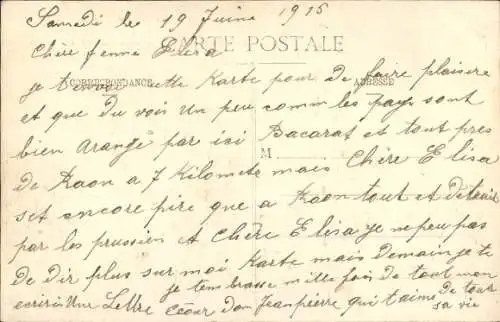 Samedi le 19 Juine 1915
CARTE POSTALE
Chère femme Elisa
CORRESPONDANCE
ADRESSE
je t'envoi cette Karte pour De faire plaisere
et que Du voix un peu comm les pays sont
bien arangé par isi Bacarat et tout pres
M
De Raon a 7 Kilometre mais Chère Elisa
set encore pire que a Raon tout et Detruis
par les prussien et Chère Elisa je ne peu pas
De Dir plus sur moi Karte mais Demain je te
ecriri une Lettre
je tembrasse mille fois de tout mon
céeur Don Jeanpierre qui t'aime De tout
sa vie